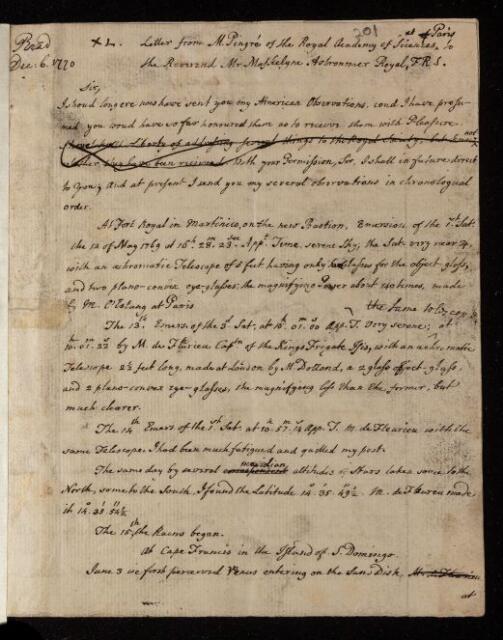 Read
Dec: 6. 1770
201
+ L. Letter from M. Pingré of the Royal Academy of Sciences, at Paris to
the Reverend Mr Maskelyne Astronomer Royal, F.R.S.
Sir,
I shoud long ere now have sent you my American Observations, coud I have presu-
med you woud have so far honoured them as to receive them with Pleasure.
I have the Liberty of addressing several things to the Royal Society, but
have been received. With your Permission, Sir, I shall in future direct
to you; and at present I send you my several observations in chronological
order.
At Fort Royal in Martinico, on the new Bastion, Emersion of the 1st Sat:
the 12 of May 1769 at 16h 28m 23s App: Time. serene Sky, the Sat. very near ♃,
with an achromatic Telescope of 5 feet having only glasses for the object-glass,
and two plano-convex eye-glasses, the magnifying Power about times, made
by M. at Paris
The 13th Emers of the 3d Sat: at 10h 01m 00 App. T. Very serene; the same at
10h 01m 22s by M. de Fleurieu Captn of the Kings Frigate Isis, with an achromatic
Telescope 2½ feet long, made at London by Mr Dollond, a 2 glass object-glass,
and 2 plano-convex eye-glasses, the magnifying less than the former, but
much clearer.
The 14th Emers of the 1st Sat: at 10h 57m 14 App. T. M. de Fleurieu with the
same Telescope. I had been much fatigued and quitted my post.
The same day by several meridian altitudes of Stars taken some to the
North, some to the South, I found the Latitude 14° 35' 49½. M. de Fleurieu made
it 14° 35' 54½
The 15th the Rains began.
At Cape Francis in the Island of S. Domingo.
June 3 we first perceived Venus entering on the Sun's Disk,
at